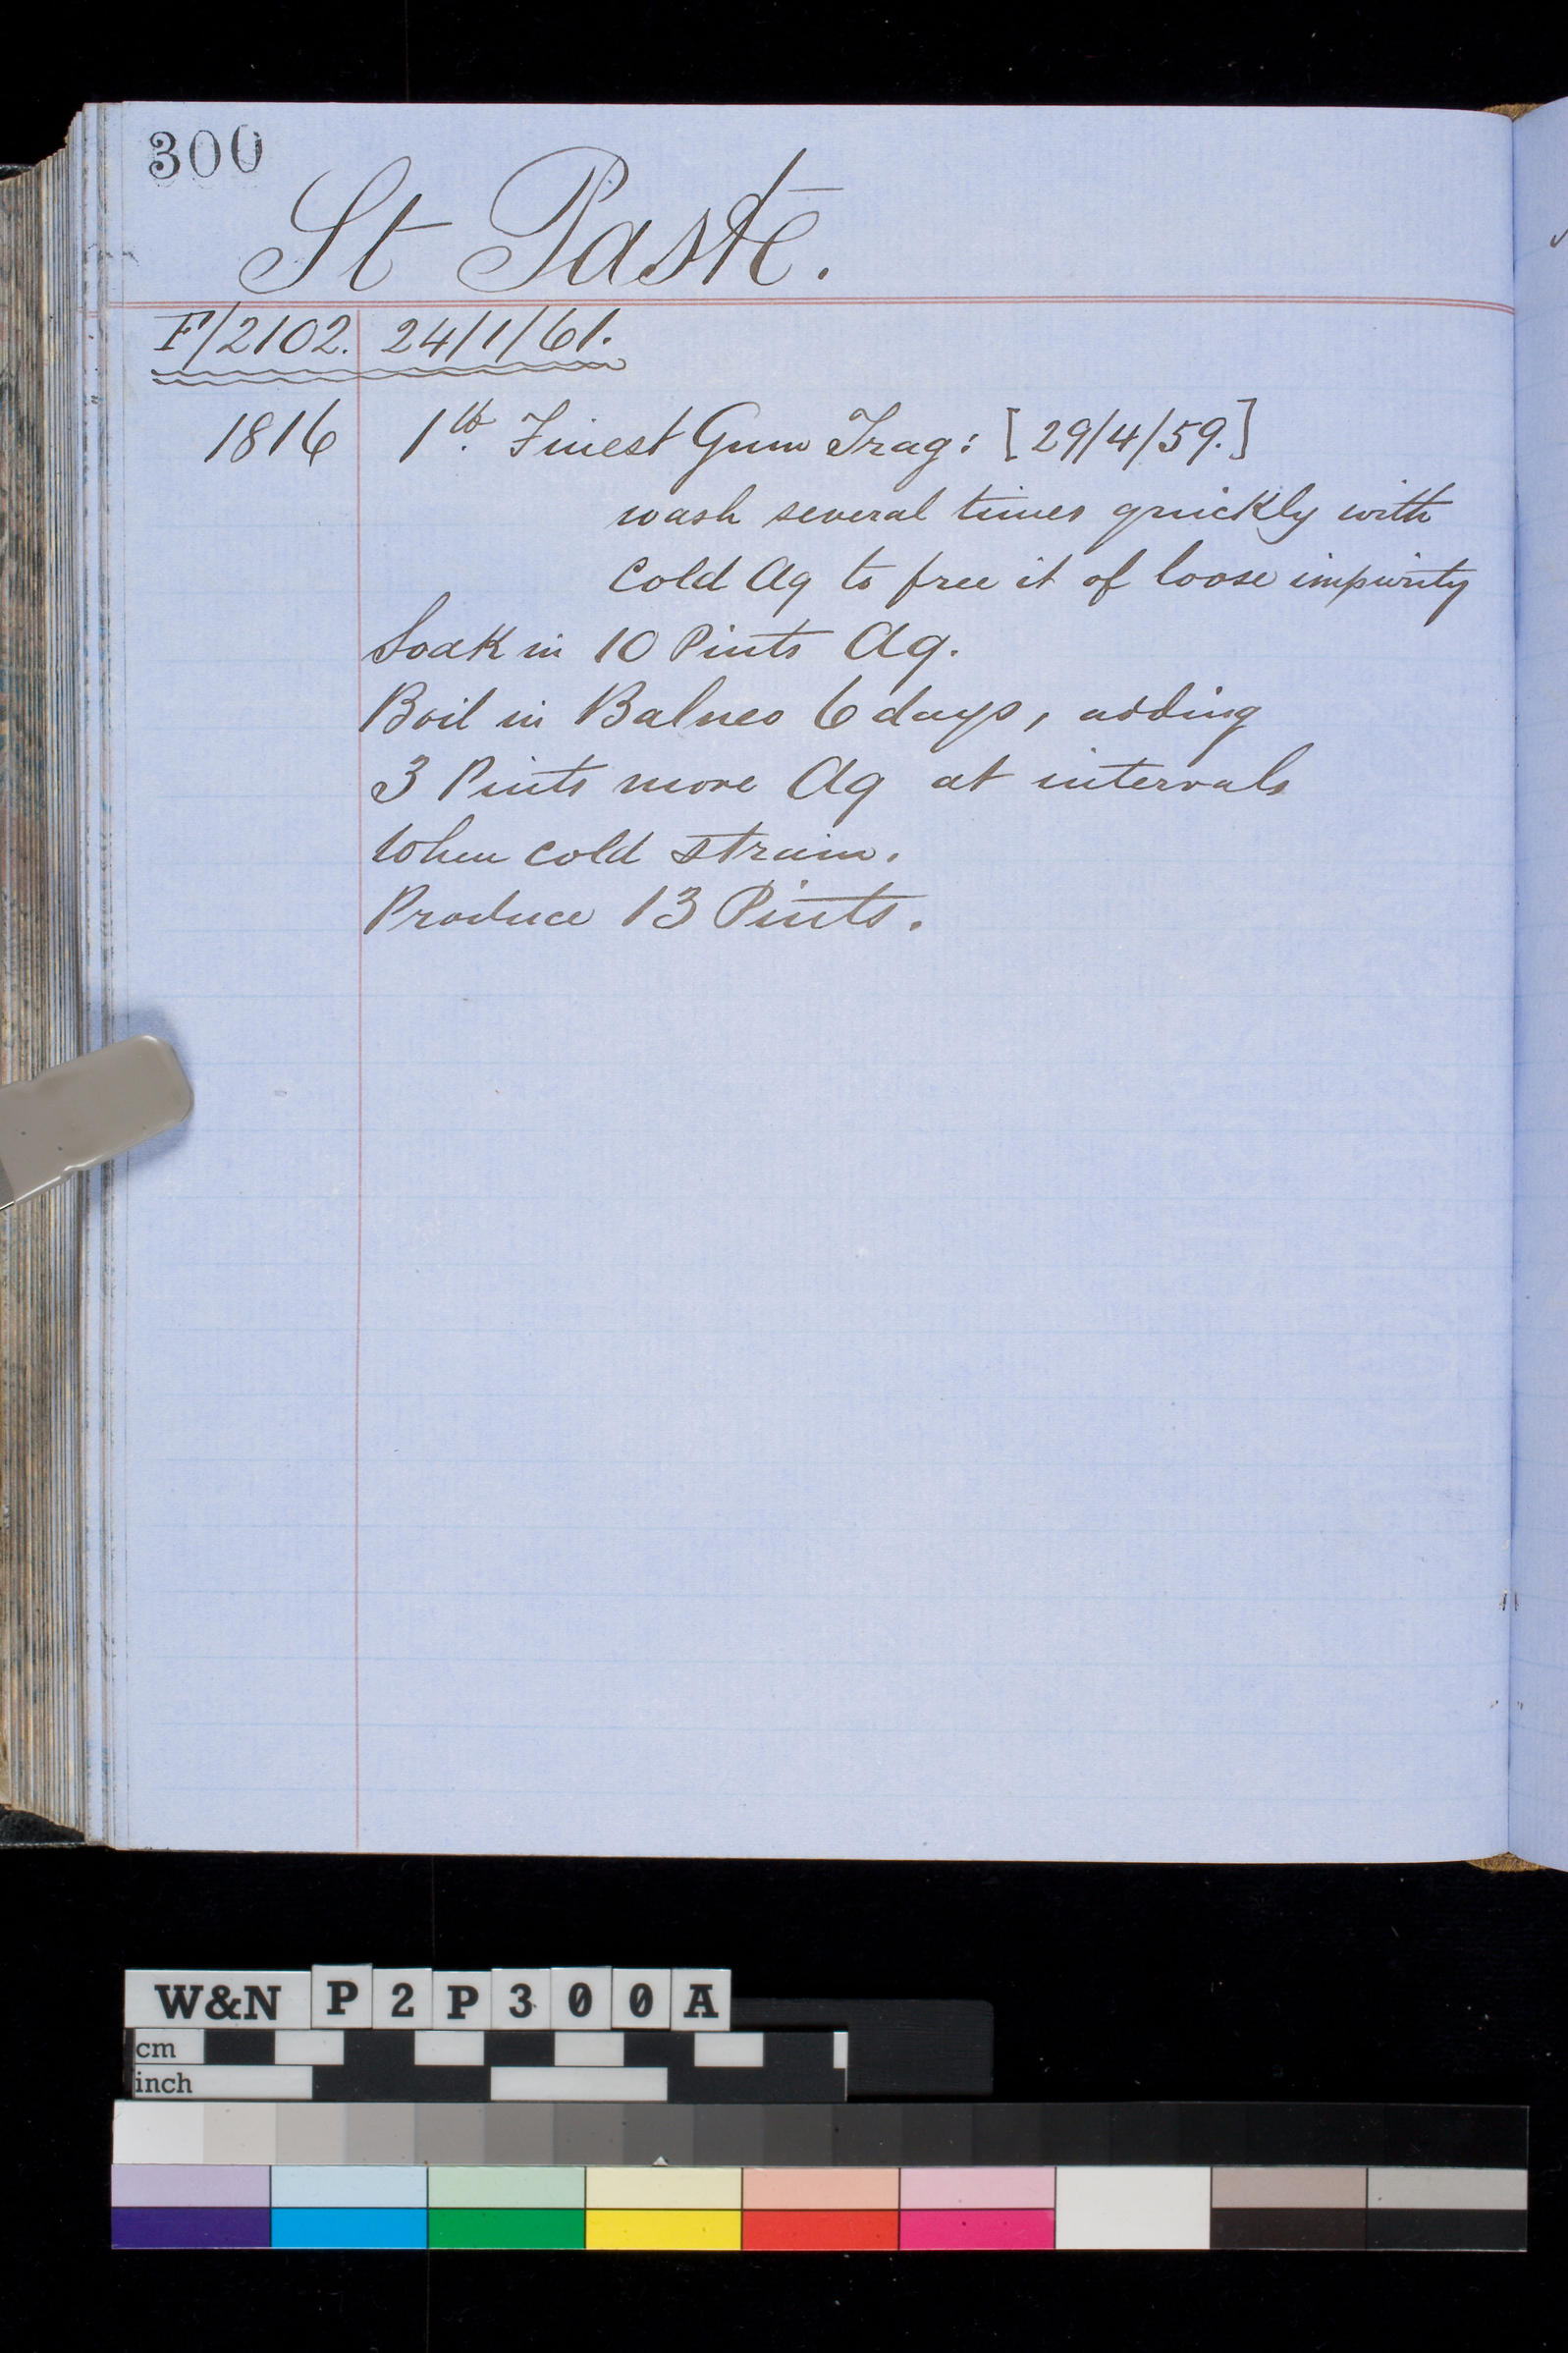 300
St Paste.
F/2102. 24/1/61.
1816 1lb. Finest Gum Trag: [29/4/59.]
wash several times quickly with
cold Aq to free it of loose impurity
Soak in 10 Pints Aq.
Boil in Balneo 6 days, adding
3 Pints more Aq at intervals
When cold strain.
Produce 13 Pints.
W&N P2P300A
cm
inch